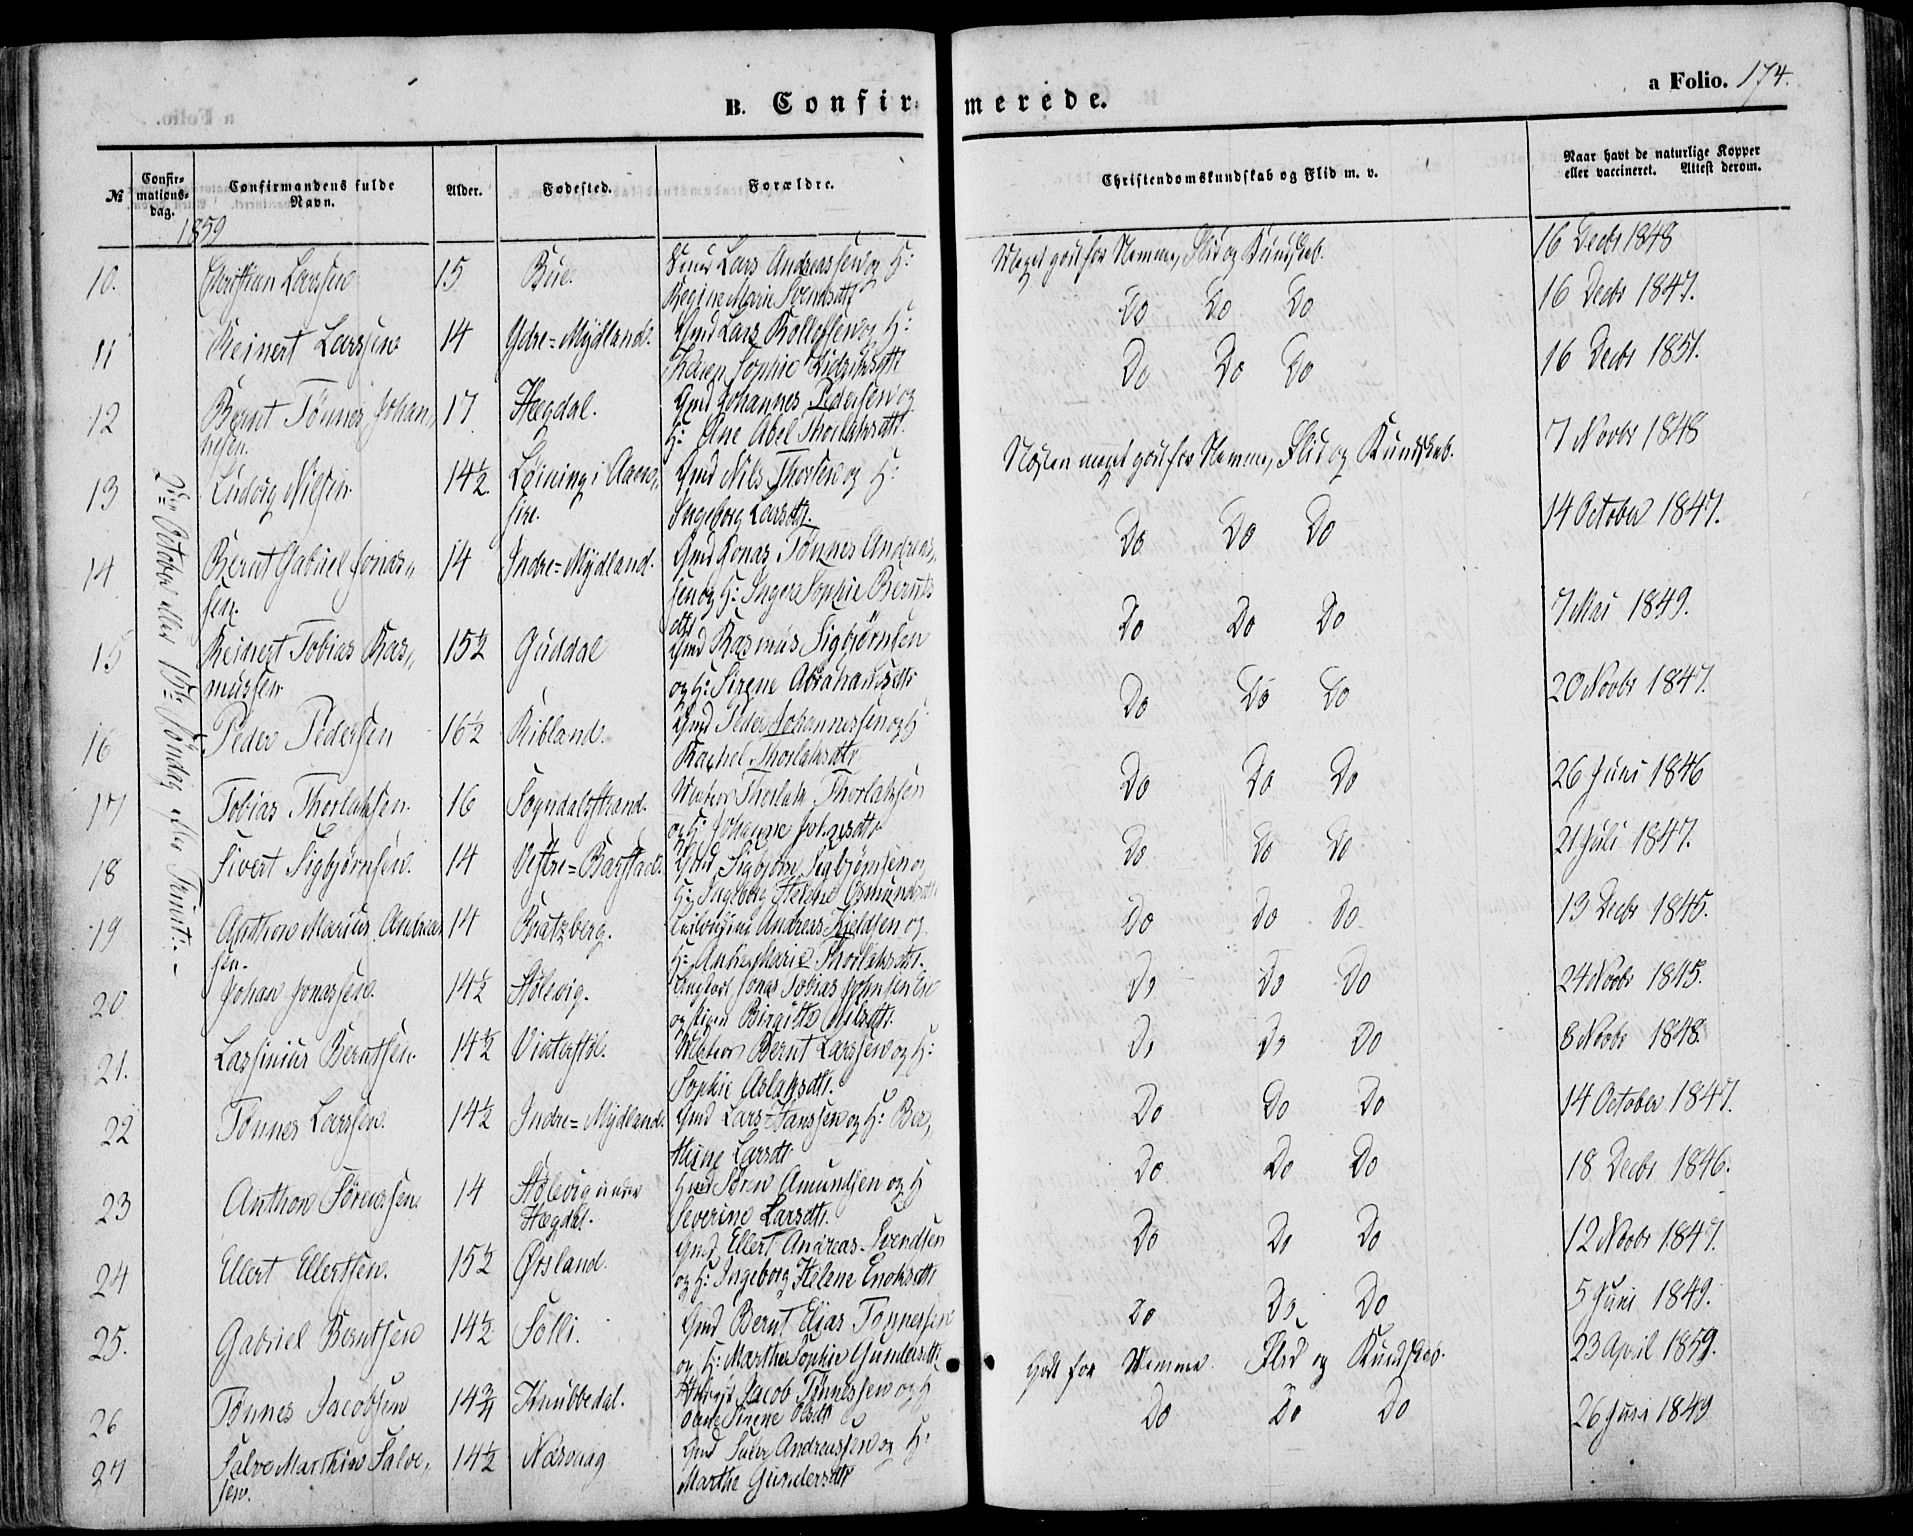 B. Confirmerede.
a Folio. 174.
№ Confirmationsdag. Confirmandens fulde Navn. Alder. Fødested. Forældre. Christendomskundskab og Flid m. v. Naar havt de naturlige Kopper eller vaccineret. Attest derom.
1859
2den October 15de Søndag efter Trinit:
10. Christian Larssen 15 Bue. Lars Andreassen og H: Meget godt for Nemme, Flid og Kundskab. 16 Decbr 1848
Regine Marie Svendsdtr
11 Reinert Larssen 14 Ydre=Mydland. Gmd Lars Rolfssen og H: Do Do Do 16 Decbr 1847.
Sophie Didriksdtr
12 Bernt Tønnes Johan„ 17 Hægdal. Gmd Johannes Pedersen og Do Do Do 16 Decbr 1851.
nesen. H: Ane Abel Thorlaksdtr.
13 Ludvig Nilsen 14½ Løining i Aaen„ Gmd Nils Thorsen og H: Næsten meget godt for Nemme, Flid og Kundskab. 7 Novbr 1848
sire. Ingeborg Larsdtr.
14 Bernt Gabriel Jonas„ 14 Indre=Mydland. Gmd Jonas Tønnes Andreas„ Do Do Do 14 October 1847.
sen. sen og H: Inger Sophie Bernts
dtr
15 Reinert Tobias Ras„ 15½ Guddal Gmd Rasmus Sigbjørnsen Do Do Do 7 Mai 1849.
mussen. og H: Sirene Abrahamsdtr
16 Peder Pedersen 16½ Ribland. Gmd Peder Johannessen og H Do Do Do 20 Novbr 1847.
Rachel Thorlaksdtr
17 Tobias Thorlaksen. 16 Sogndalsstrand. Thorlak Thorlaksen Do Do Do 26 Juni 1846
og H: Johanne
18 Sivert Sigbjørnsen. 14 Vestre=Barstad. Gmd Sigbjørn Sigbjørnsen og Do Do Do 21 Juli 1847.
H: Ingeborg Helene Osmundsdtr
19 Anthon Marius Andreas 14 Bratzberg. Andreas Kjeldsen og Do Do Do 13 Decbr 1845.
sen. H: Marie Thorlaksdtr.
20 Johan Jonassen. 14½ Stølevig. Jonas Tobias Johnsen Do Do Do 24 Novbr 1845.
og pigen Birgitte Nilsdtr.
21. Lassinius Berntsen. 14½ Vinterstøl. Bernt Larssen og H: Do Do Do 8 Novbr 1848.
Sophie Aslaksdtr.
22 Tønnes Larssen. 14½ Indre=Mydland. Gmd Lars Hanssen og H: Ber„ Do Do Do 14 October 1847.
thine Larsdtr
23 Anthon Sørenssen. 14 Stølevig under Sørn Amundsen og H Do Do Do 18 Decbr 1846.
Hægdal. Severine Larsdtr.
24 Ellert Ellertsen. 15½ Ørsland. Gmd Ellert Andreas Svendsen Do Do Do 12 Novbr 1847.
og H: Ingeborg Helene Enoksdtr
25. Gabriel Berntsen 14½ Sølli. Gmd Bernt Elias Tønnessen Do Do Do 5 Juni 1849.
og H: Marthe Sophie Gundersdtr
26 Tønnes Jacobsen 14¾ Knubbedal. Jacob Tønnessen og H Godt for Nemme. Flid og Kundskab. 23 April 1859.
Sirene Olsdtr
27 Salve Marthin Salve„ 14½ Næsvaag Gmd Salve Andreassen og H: Do Do Do 26 Juni 1849
sen. Marthe Gundersdtr